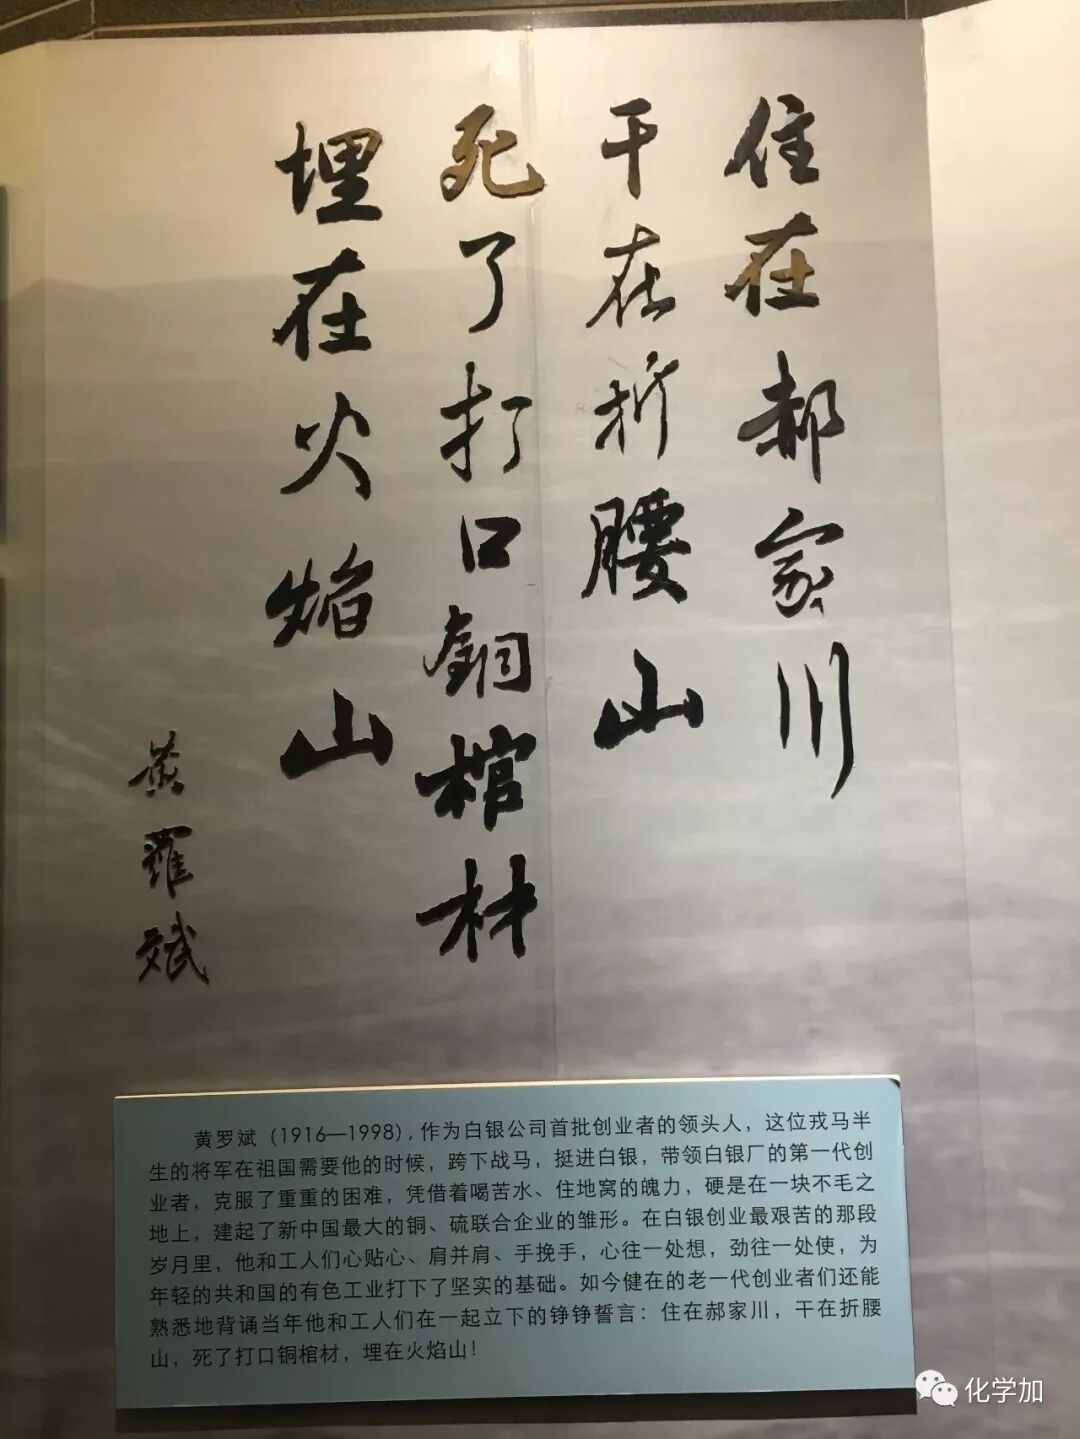 住在郝家川
干在折腰山
死了打口銅棺材
埋在火焰山
黄羅斌
黄罗斌（1916—1998），作为白银公司首批创业者的领头人，这位戎马半
生的将军在祖国需要他的时候，跨下战马，挺进白银，带领白银厂的第一代创
业者，克服了重重的困难，凭借着喝苦水、住地窝的魄力，硬是在一块不毛之
地上，建起了新中国最大的铜、硫联合企业的雏形。在白银创业最艰苦的那段
岁月里，他和工人们心贴心、肩并肩、手挽手，心往一处想，劲往一处使，为
年轻的共和国的有色工业打下了坚实的基础。如今健在的老一代创业者们还能
熟悉地背诵当年他和工人们在一起立下的铮铮誓言：住在郝家川，干在折腰
山，死了打口铜棺材，埋在火焰山！
化学加